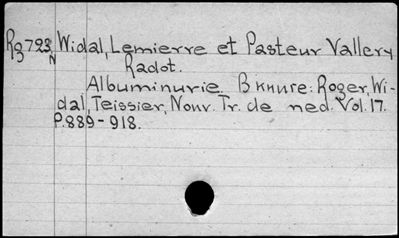 Rg723 Widal, Lemierre et Pasteur Vallery
N
Radot.
Albuminurie. В книге: Roger, Wi-
dal, Teissier, Nouv. Tr. de med. Vol. 17.
P. 889-918.